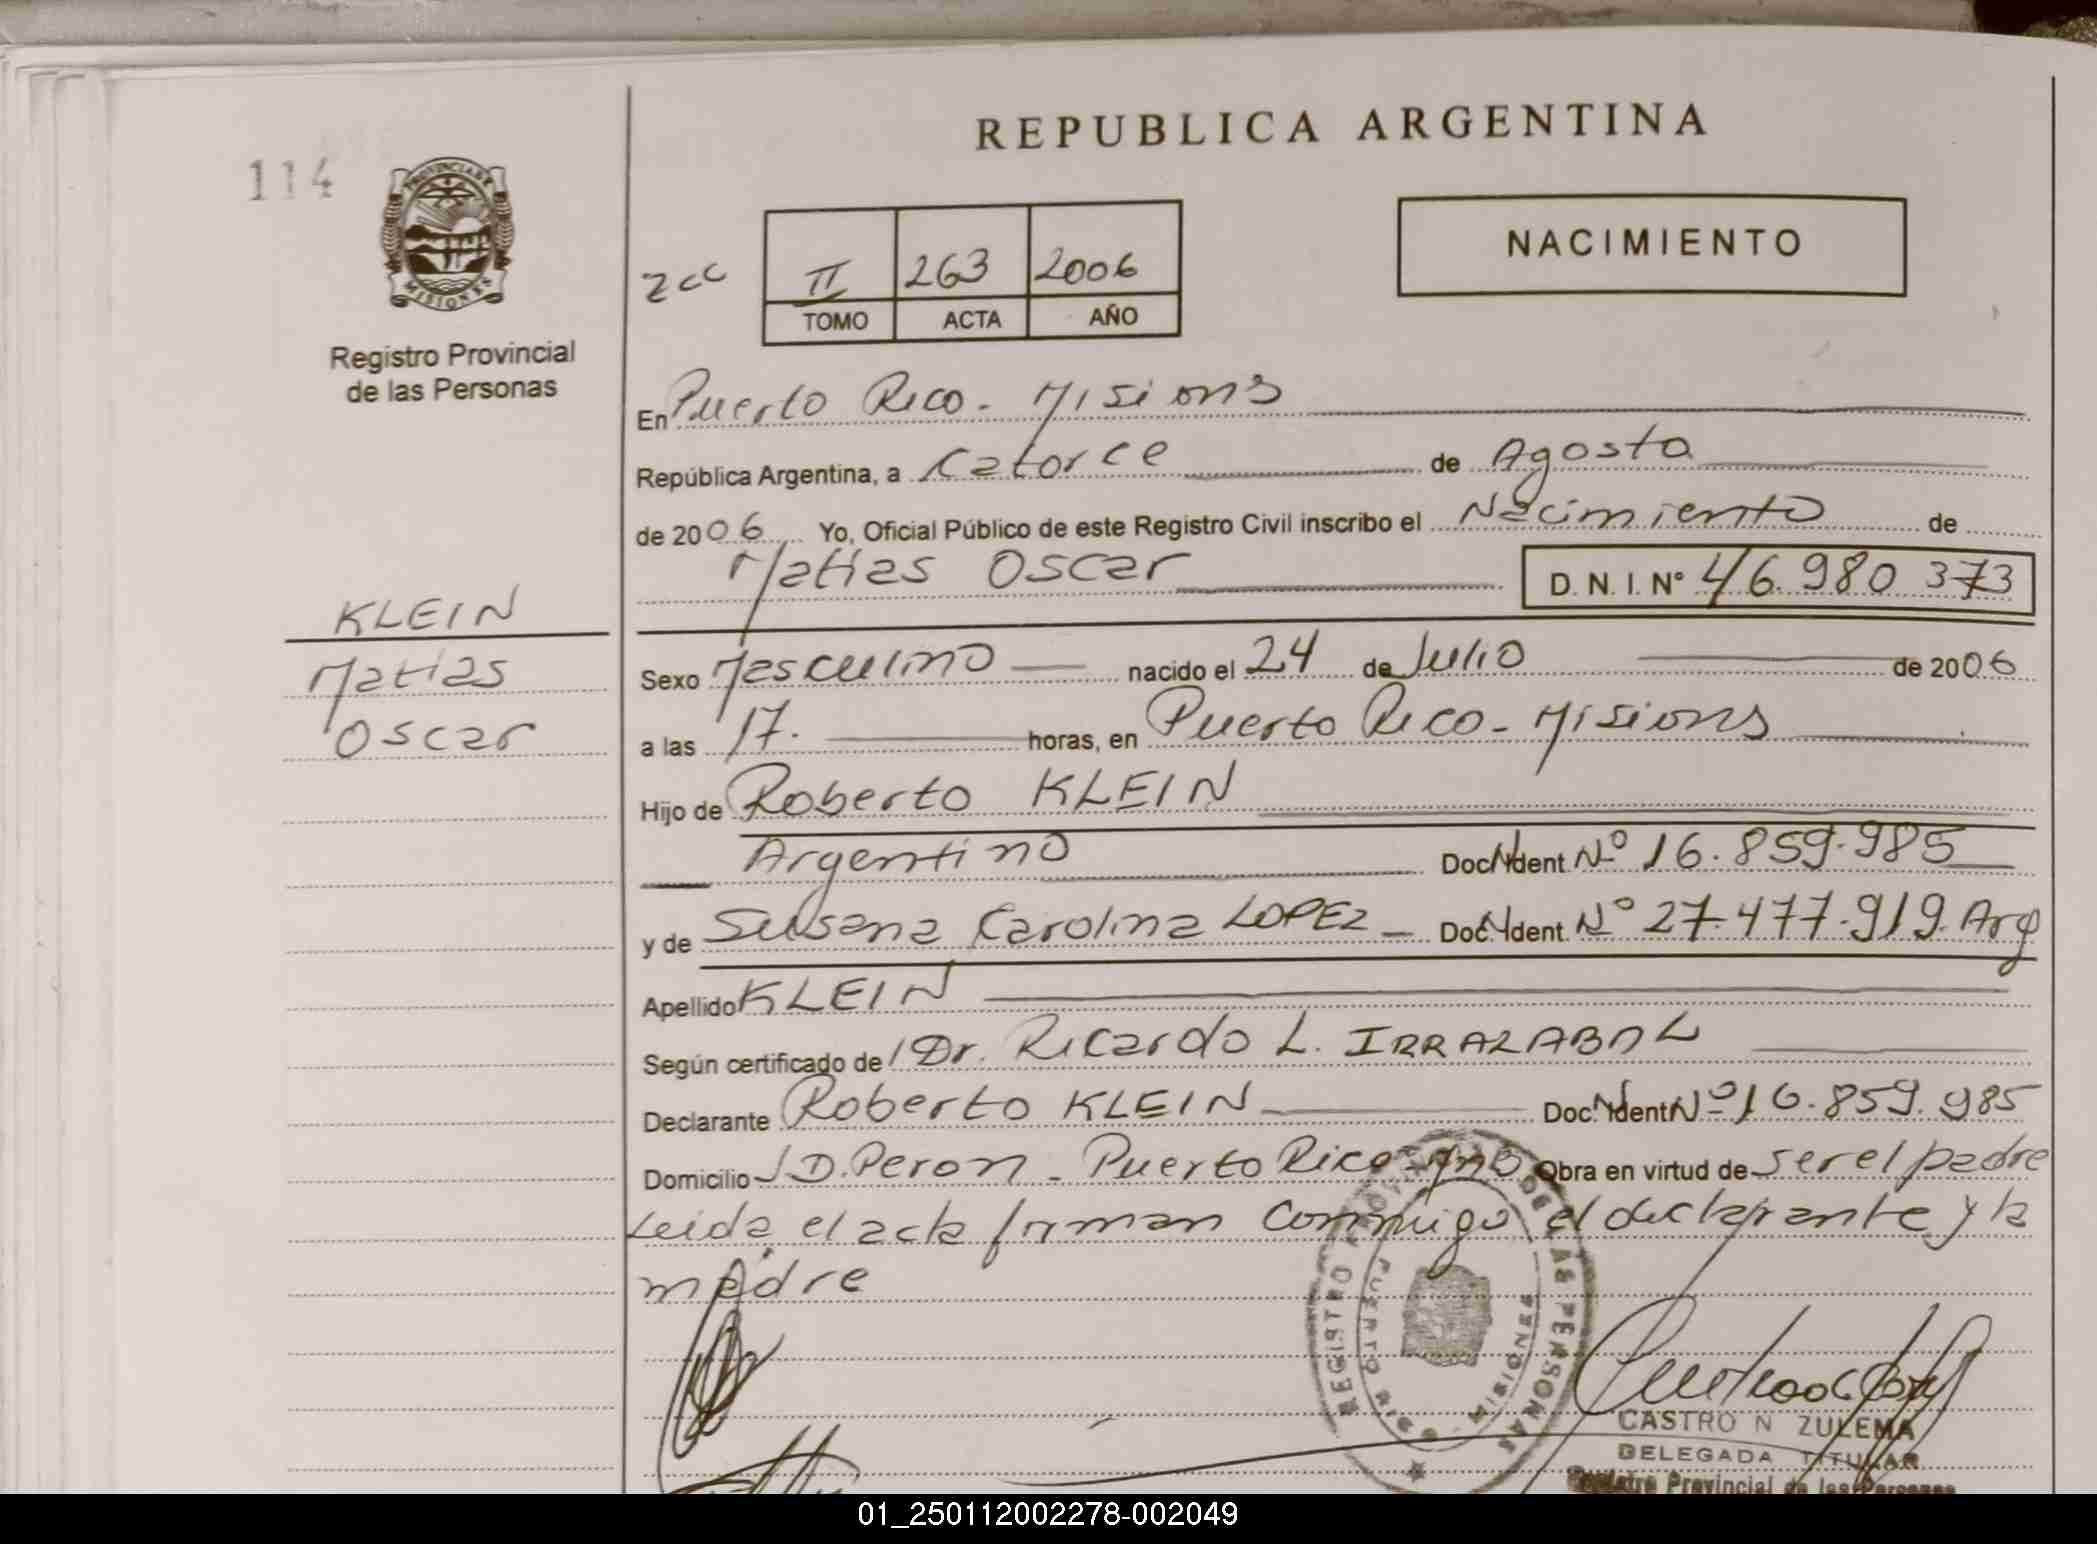 REPUBLICA ARGENTINA
114
PROVINCIA DE
MISIONES
Registro Provincial
de las Personas
2cc
II 263 2006
TOMO ACTA AÑO
NACIMIENTO
En Puerto Rico - Misions
República Argentina, a Catorce de Agosto
de 2006 Yo, Oficial Público de este Registro Civil inscribo el Nacimiento de
Matias Oscar D. N. I. N° 46.980 373
KLEIN
Matias
Oscar
Sexo Masculino nacido el 24 de Julio de 2006
a las 17. horas, en Puerto Rico - Misions
Hijo de Roberto KLEIN
Argentino Doc. Ident. Nº 16.859.985
y de Susana Carolina LOPEZ - Doc. Ident. Nº 27.477.919. Arg
Apellido KLEIN
Según certificado de Dr. Ricardo L. IRRAZABAL
Declarante Roberto KLEIN Doc. Ident Nº 16.859.985
Domicilio J.D. Peron - Puerto Rico - Obra en virtud de ser el padre
Leida el acta firman conmigo el declarante y la
madre
REGISTRO DE LAS PERSONAS
PUERTO RICO MISIONES
CASTRO N ZULEMA
DELEGADA TITULAR
Registro Provincial de las Personas
01_250112002278-002049